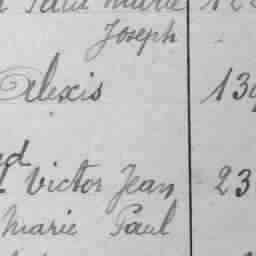 Paul Marie
Joseph
Alexis 139
Victor Jean 23
Marie Paul